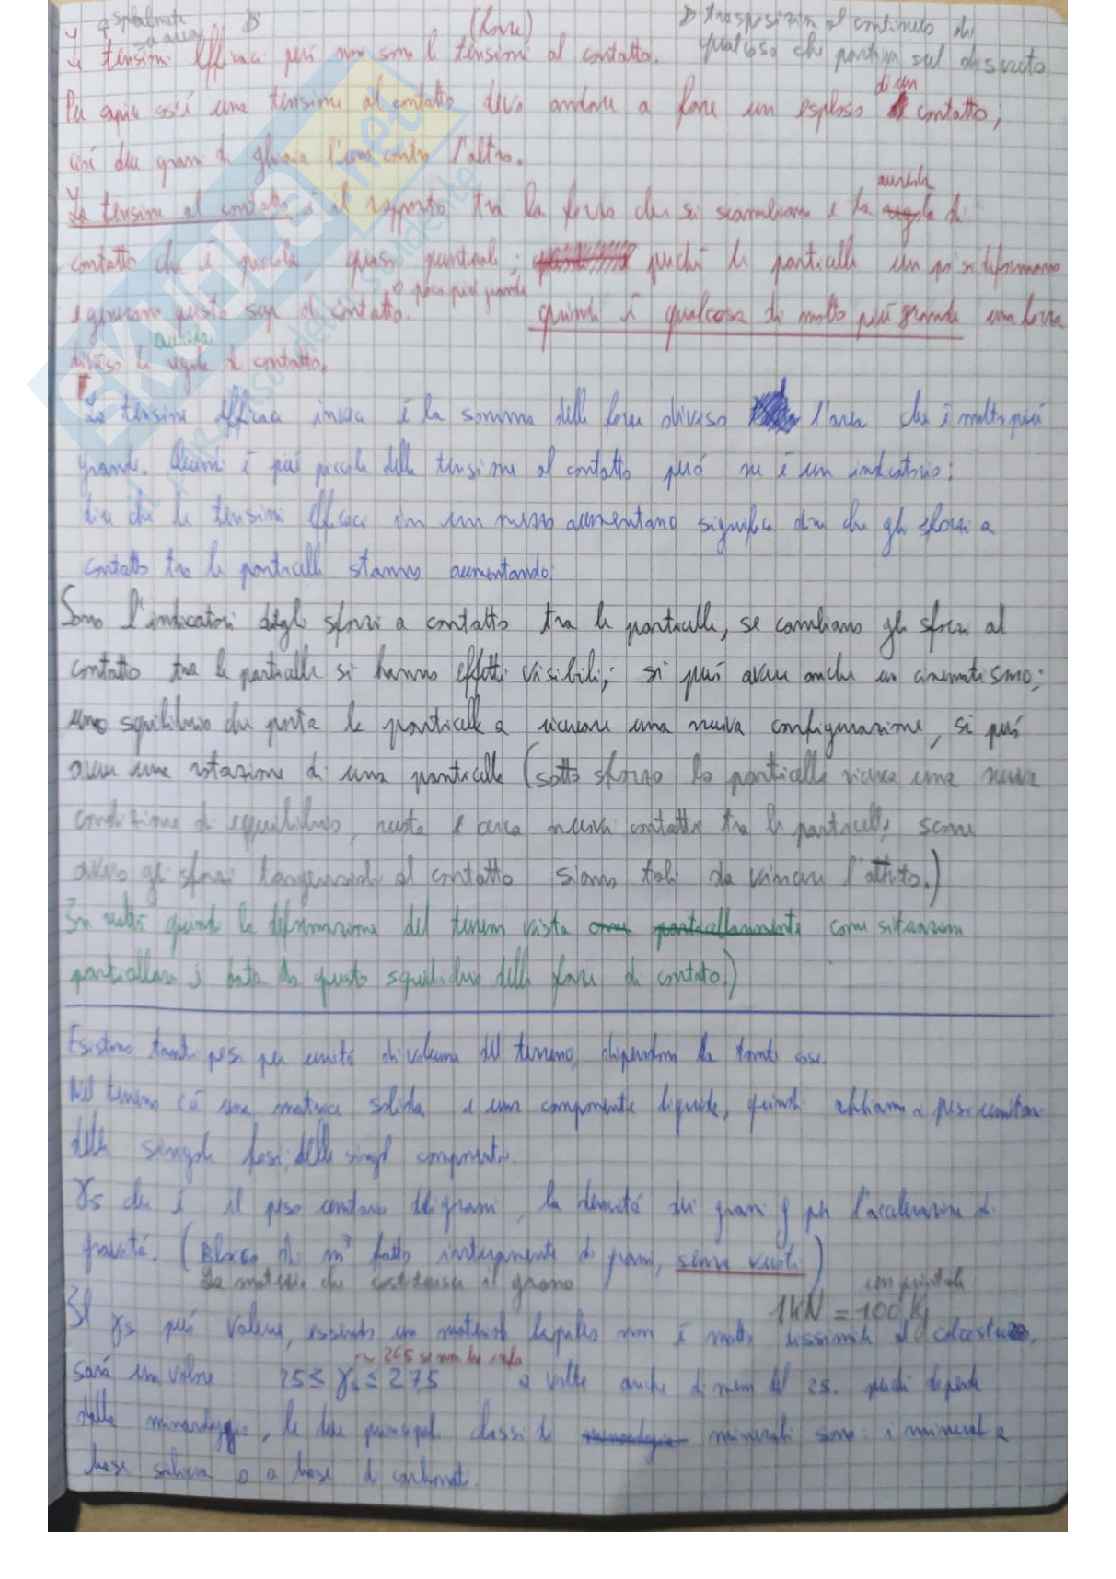 (forze) trasposizione al continuo di
qualcosa che partiva sul discreto
Le tensioni efficaci però non sono le tensioni al contatto.
Per capire cos'è una tensione al contatto devo andare a fare un esploso di un contatto,
cioè due grani di ghiaia l'uno contro l'altro.
La tensione al contatto è il rapporto tra la forza che si scambiano e la di
contatto che è piccola quasi puntuale; perché le particelle un po si deformano
e generano questa sup di contatto. quindi è qualcosa di molto più grande una forza
diviso la di contatto.
La tensione efficace invece è la somma delle forze diviso l'area che è molto più
grande. Quindi è più piccola della tensione al contatto però ne è un indicatore:
Dire che le tensioni efficaci in un mezzo aumentano significa dire che gli sforzi a
contatto tra le particelle stanno aumentando.
Sono l'indicatori degli sforzi a contatto tra le particelle, se cambiano gli sforzi al
contatto tra le particelle si hanno effetti visibili; si può avere anche un cinematismo;
uno squilibrio che porta le particelle a ricercare una nuova configurazione, si può
avere una rotazione di una particella (sotto sforzo la particella ricerca una nuova
condizione di equilibrio, ruota e cerca nuovi contatti tra le particelle,
gli sforzi tangenziali al contatto siano tali da vincere l'attrito.)
In realtà quindi la deformazione del terreno vista come situazione
particellare è data da questo squilibrio delle forze di contatto.)
Esistono tanti pesi per unità di volume del terreno, dipendono da tante cose.
Nel terreno c'è una matrice solida e una componente liquida, quindi abbiamo peso unitario
delle singole fasi: delle singole componenti.
γs che è il peso unitario dei grani, la densità dei grani per l'accelerazione di
gravità. (Blocco di m³ fatto interamente di grani, senza vuoti)
La materia che costituisce il grano
1kN = 100 Kg
Il γs può valere, essendo un materiale lapideo non è molto dissimile al calcestruzzo,
~ 26.5 se non ho info
sarà un valore 25 ≤ γs ≤ 27.5 a volte anche di meno del 25. perché dipende
dalla mineralogia, le due principali classi di minerali sono: i minerali a
base silicea o a base di carbonati.